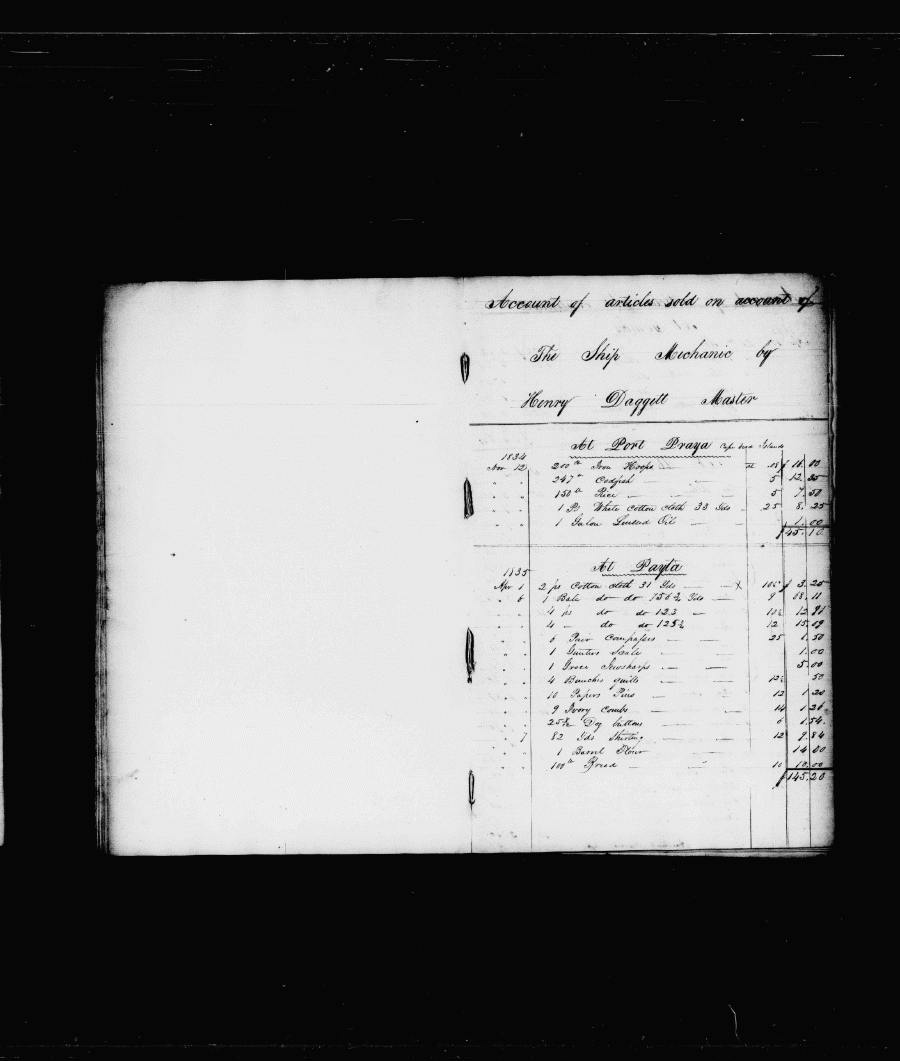 Account of articles sold on account of
The Ship Mechanic by
Henry Daggett Master
At Port Praya Cape Verd Islands
1834
Nov 12 200 lb Iron Hoops at .08 $ 16.00
" " 247 lb Codfish 5 12.35
" " 150 lb Rice 5 7.50
" " 1 Ps White Cotton cloth 33 Yds 25 8.25
" " 1 Galon Linseed Oil 1.00
$45.10
At Payta
1835
Apr 1 2 ps Cotton cloth 31 Yds X 10½ $ 3.25
" 6 1 Bale do do 756¾ Yds 9 68.11
" " 4 ps do do 123 10½ 12.91
" " 4 do do 125¾ 12 15.09
" " 6 Pair Compasses 25 1.50
" " 1 Gunters Scale 1.00
" " 1 Groce Jewsharps 5.00
" " 4 Bunches quills 12½ 50
" " 10 Papers Pins 12 1.20
" " 9 Ivory Combs 14 1.26
" " Doz buttons 6 1.54
" 7 82 Yds Shirting 12 9.84
" " 1 Barrel Flour 14.00
" " 100 lb Bread 10 10.00
$145.20